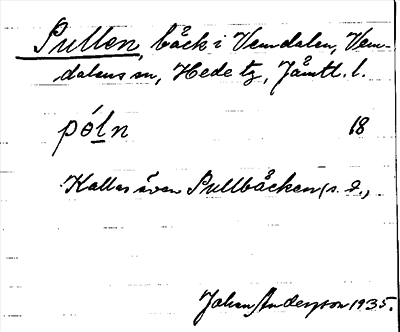 Pullen, bäck i Vemdalen, Vem-
dalens sn, Hede tg, Jämtl. l.
pó̱ln 18
Kallas även Pullbäcken (s. d.,
Johan Anderson 1935.